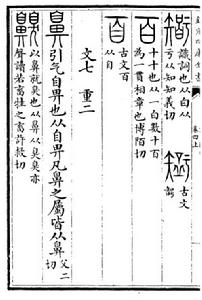 𥏼 識詞也从白从
亏从知知義切
古文
𥏼
百 十十也从一白數十百
為一貫相章也博陌切
古文百
从自
文七 重二
鼻 引气自畀也从自畀凡鼻之屬皆从鼻 父二
切
齅 以鼻就臭也从鼻从臭臭亦
聲讀若畜牲之畜許救切
卷四上